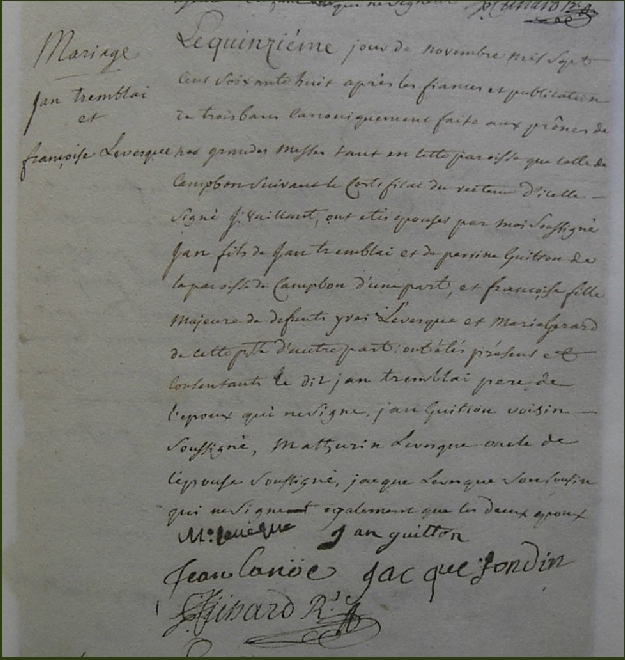 que ne signent
Mariage
jan tremblai
et
françoise Levesque
Le quinziéme jour de novembre mil sept
cens soixante huit aprés les fiances et publication
de trois bans canoniquement faite aux prônes de
nos grandes messes tant en cette paroisse que celle de
Campbon suivant le certificat du recteur d'icelle
signé J. Vaillant, ont etés epousés par moi soussigné
jan fils de jan tremblai et de perrine Guitton de
la paroisse de Campbon d'une part, et françoise fille
majeure de defunts yvai Levesque et Marie Gerard
de cette psse d'autre part: ont étés présens et
consentants le dit jan tremblai pere de
l'epoux qui ne signe, jan Guitton voisin
soussigné, Mathurin Levesque oncle de
l'épouse soussigné, jacque Levesque son cousin
qui ne signent egalement que les deux epoux
M: leveque jan guitton
Jean Lanöe Jacque jondin